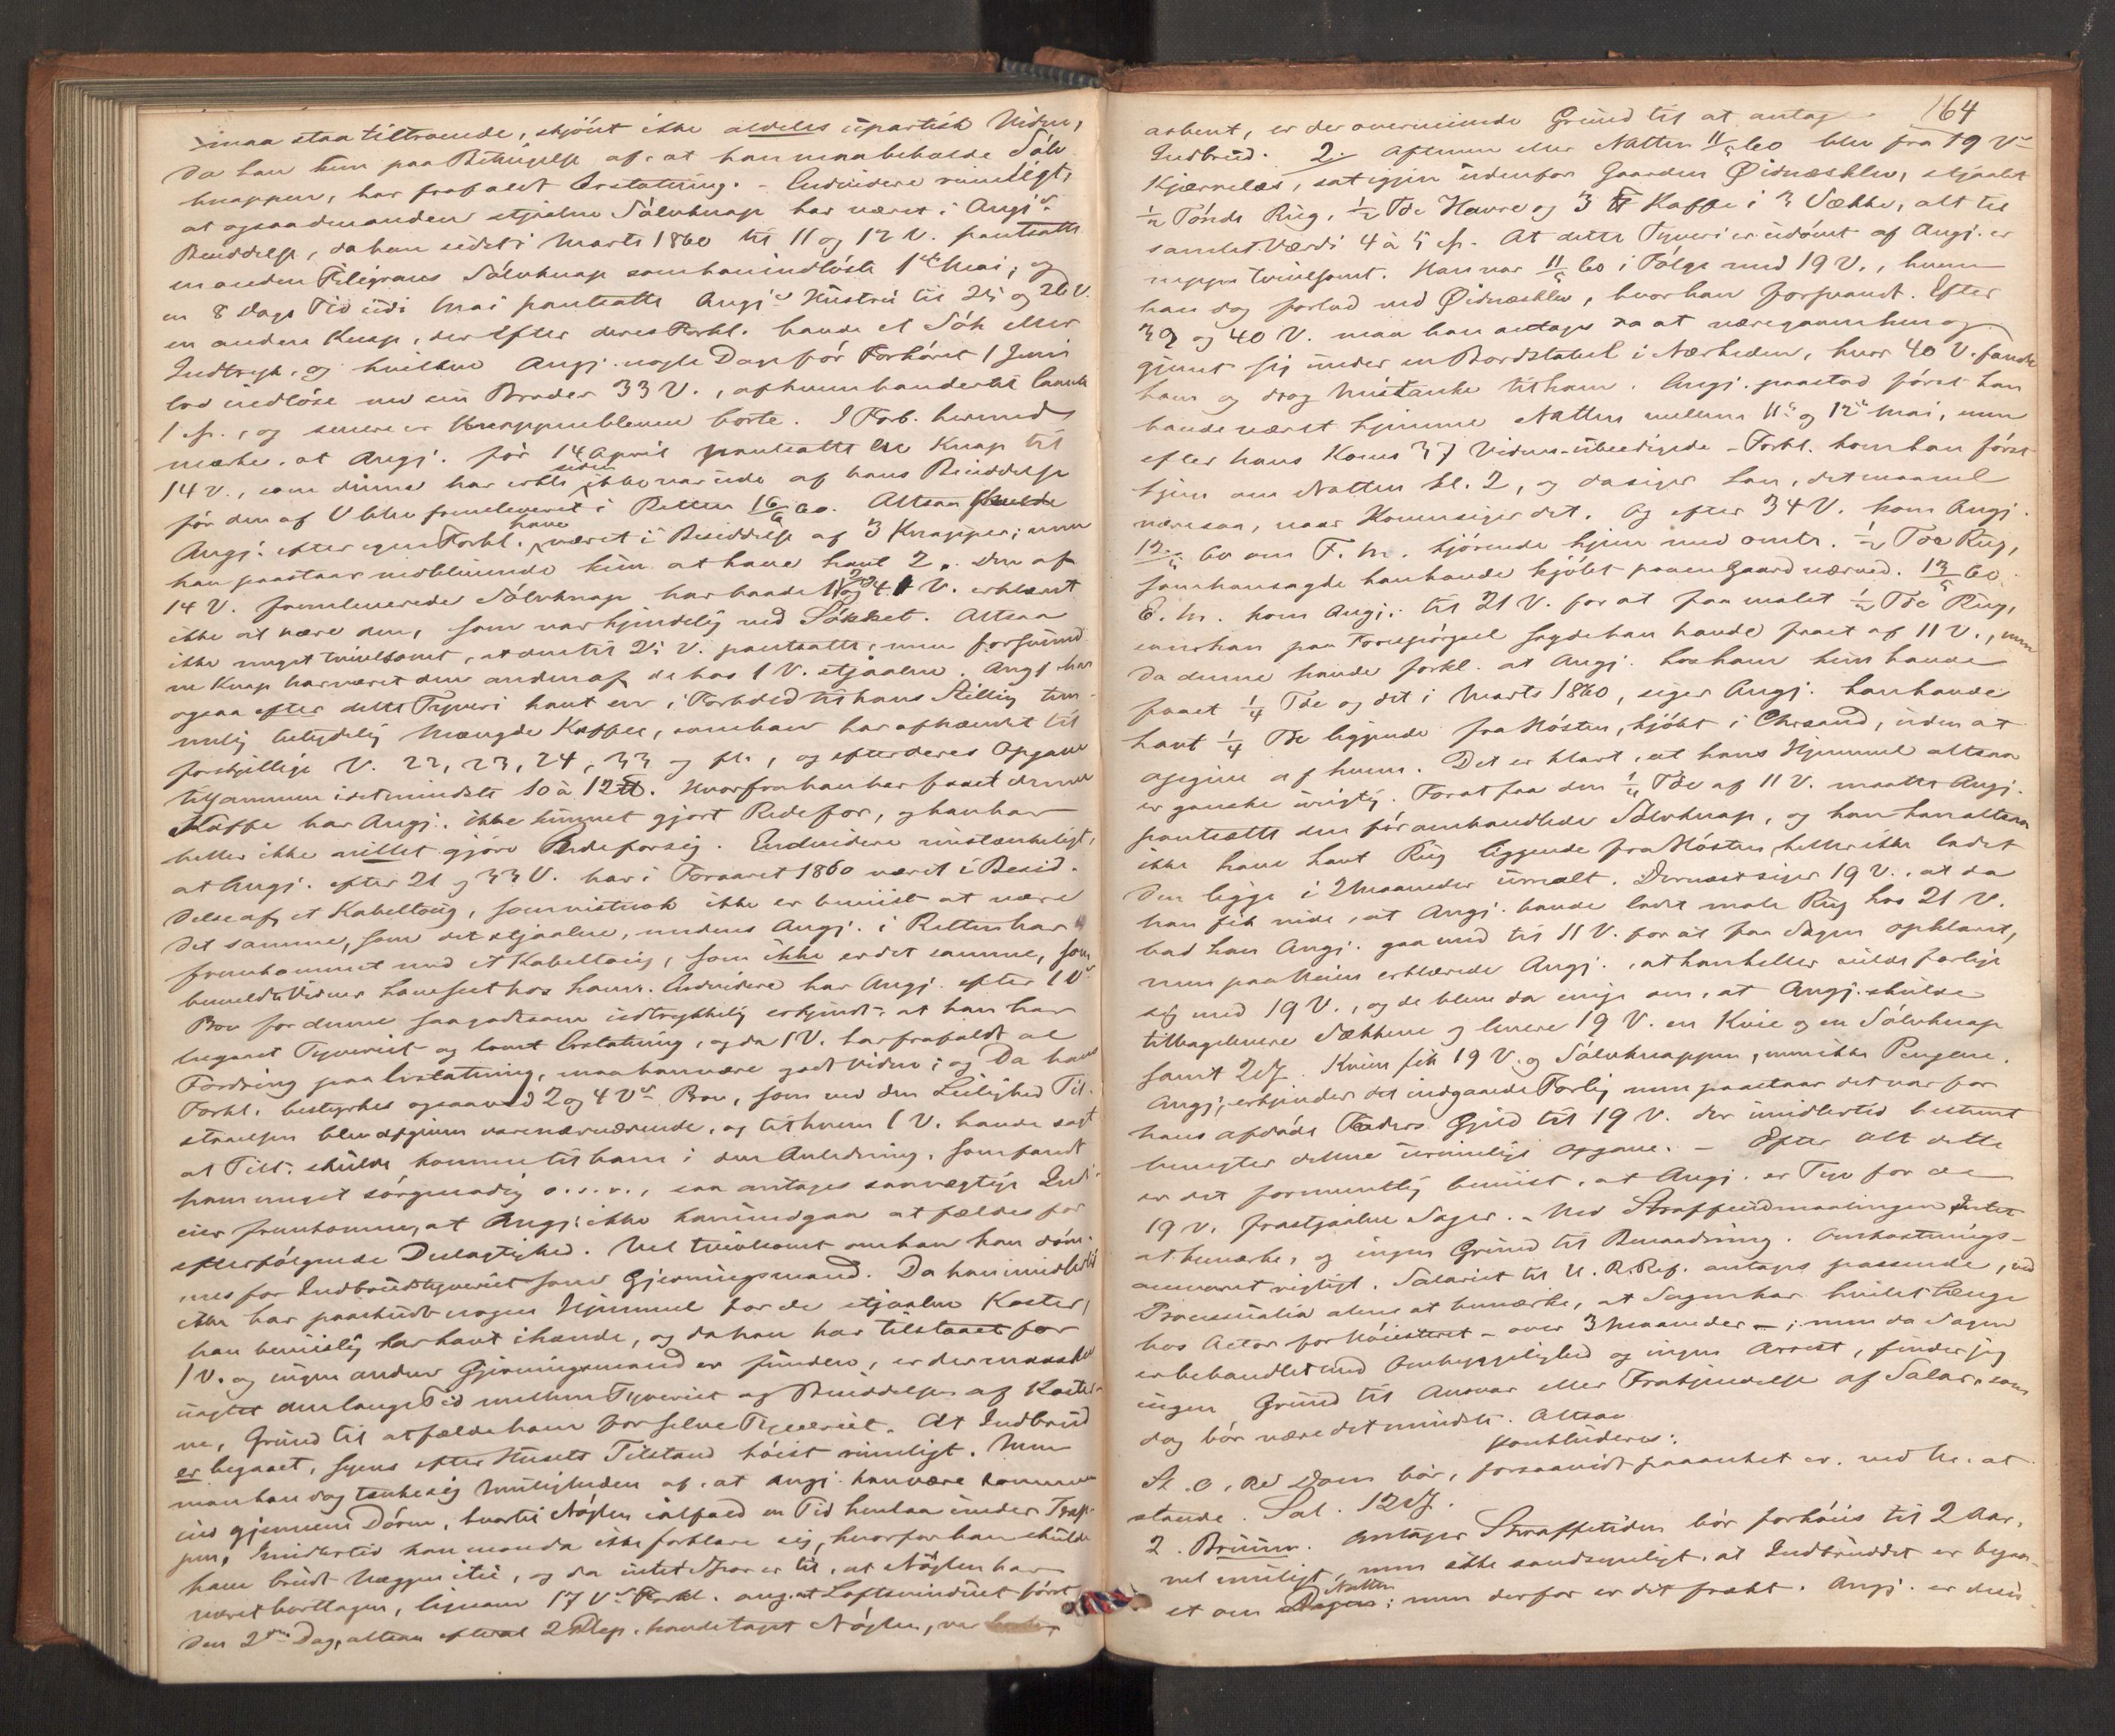 maa staa tiltroende, skjönt ikke aldeles upartisk Vidne,
da han kun paa Betingelse af, at han maa beholde Sölv
knappen, har frafaldt Erstatning. - Endvidere rimeligt,
at ogsaa den anden stjaalne Sölvknap har været i Angj.s
Besiddelse, da han sidst i Marts 1860 til 11 og 12 V. pantsatte
en anden Filegrans Sölvknap som han indlöste 1ste Mai, og
en 8 Dags Tid ud i Mai pantsatte Angj.s Hustru til 25 og 26 V.
en anden Knap, der efter deres Forkl. havde et Sök eller
Indtryk, og hvilken Angj. nogle Dage för Forhöret 1 Juni
lod indlöse ved sin Broder 33 V., af hvem han dertil laante
1 Sp., og senere er Knappen bleven borte. I Forb. hermed
mærkes, at Angj. för 14 April pantsatte en Knap til
14 V., som denne har erkl. siden ikke var ude af hans Besiddelse
för den af V blev fremleveret i Retten 16/6 60. Altsaa skulde
Angj. efter egen Forkl. have været i Besiddelse af 3 Knapper; men
han paastaar vedblivende kun at have havt 2. Den af
14 V. fremleverede Sölvknap har baade 1 og 4 V. erklæret
ikke at være den, som var kjendelig ved Sökket. Altsaa
ikke meget tvivlsomt, at den til 25 V. pantsatte, men forsvund-
ne Knap har været den anden af de hos 1 V. stjaalne. Angj. har
ogsaa efter dette Tyveri havt en, i Forhold til hans Stilling tem-
melig betydelig Mængde Kaffee, som han har afhændet til
forskjellige V. 22, 23, 24, 33 og fl., og efter deres Opgave
tilsammen i det mindste 10 à 12 ℔. Hvorfra han har faaet denne
Kaffe har Angj. ikke kunnet gjort Rede for, og han har
heller ikke villet gjöre Rede for sig. Endvidere mistænkeligt,
at Angj. efter 21 og 33 V. har i Foraaret 1860 været i Besid-
delse af et Kabeltoug, som vistnok ikke er beviist at være
det samme, som det stjaalne, medens Angj. i Retten har
fremkommet med et Kabeltoug, som ikke er det samme, som
bemeldte Vidner have seet hos ham. Endvidere har Angj. efter 1 V.s
Prov for denne saagodtsom udtrykkelig erkjendt, at han har
begaaet Tyveriet og lovet Erstatning, og da 1 V. har frafaldt al
Fordring paa Erstatning, maa han være godt Vidne; og da hans
Forkl. bestyrkes ogsaa ved 2 og 4 V.s Prov, som ved den Leilighed Til-
staaelsen blev afgiven vare nærværende, og til hvem 1 V. havde sagt
at Tilt. skulde komme til ham i den Anledning, som fandt
ham meget sörgmodig o.s.v., saa antages saavægtige Indi-
cier fremkomne, at Angj. ikke kan undgaa at fældes for
efterfölgende Deelagtighed. Vel tvivlsomt om han kan döm-
mes for Indbrudstyveriet som Gjerningsmand. Da han imidlertid
ikke har paaskudt nogen Hjemmel for de stjaalne Koster,
han beviislig har havt ihænde, og da han har tilstaaet for
1 V. og ingen anden Gjerningsmand er funden, er der maaskee
uagtet den lange Tid mellem Tyveriet og Besiddelsen af Koster-
ne, Grund til at fælde ham for selve Tyveriet. At Indbrud
er begaaet, synes efter Husets Tilstand höist rimeligt. Men
man kan dog tænke sig Muligheden af, at Angj. kan være kommen
ind gjennem Dören, hvortil Nöglen ialfald en Tid henlaa under Trap-
pen. Imidlertid kan man da ikke forklare sig, hvorfor han skulde
have brudt Væggen itu, og da intet Spor er til, at Nöglen har
været borttagen, ligesom 17 V.s Forkl. ang. at Loftsvinduet först
den 2den Dag, altsaa efterat 2 Rep. havde taget Nöglen, var
164
aabent, er der overveiende Grund til at antage
Indbrud. 2. Aftenen eller Natten 11/5 60 blev fra 19 V.s
Kjærrelæs, sat igjen udenfor Gaarden Öidnæsklev, stjaalet
½ Tönde Rug, ½ Tde Havre og 3 ℔ Kaffe i 3 Sække, alt til
samlet Værdi 4 à 5 Sp. At dette Tyveri er udövet af Angj. er
neppe tvivlsomt. Han var 11/5 60 i Fölge med 19 V., hvem
han dog forlod ved Öidnæsklev, hvor han forsvandt. Efter
39 og 40 V. maa han antages da at være gaaen hen og
gjemt sig under en Bordstabel i Nærheden, hvor 40 V. fandt
ham og drog Mistanke til ham. Angj. paastod först han
havde været hjemme Natten mellem 11te og 12te Mai, men
efter hans Kones 37 Vidnes ubeedigede Forkl. kom han först
hjem om Natten kl. 2, og da siger han, det maa vel
være saa, naar Konen siger det. Og efter 34 V. kom Angj.
12/5 60 om F. M. kjörende hjem med omtr. ½ Tde Rug,
som han sagde han havde kjöbt paa en Gaard nærved. 13/5 60
E. M. kom Angj. til 21 V. for at faa malet ½ Tde Rug,
som han paa Forespörgsel sagde han havde faaet af 11 V., men
da denne havde forkl. at Angj. hos ham kun havde
faaet ¼ Tde og det i Marts 1860, siger Angj. han havde
havt ¼ Tde liggende fra Hösten, kjöbt i Chrsand, uden at
opgive af hvem. Det er klart, at hans Hjemmel altsaa
er ganske urigtig. For at faa den ¼ Tde af 11 V. maatte Angj.
pantsætte den för omhandlede Sölvknap, og han kan altsaa
ikke have havt Rug liggende fra Hösten, heller ikke ladet
den ligge i 2 Maaneder umalt. Dernæst siger 19 V., at da
han fik vide, at Angj. havde ladet male Rug hos 21 V.
bad han Angj. gaa med til 11 V. for at faa Sagen opklaret,
men paa Veien erklærede Angj., at han heller vilde forlige
sig med 19 V., og de bleve da enige om, at Angj. skulde
tilbagelevere Sækkene og levere 19 V. en Kvie og en Sölvknap
samt 2 Sp. Kvien fik 19 V. og Sölvknappen, men ikke Pengene.
Angj. erkjender det indgaaede Forlig men paastaar det var for
hans afdöde Faders Gjeld til 19 V. der imidlertid bestemt
benegter denne urimelige Opgave. - Efter alt dette
er det formentlig beviist, at Angj. er Tyv for de
19 V. frastjaalne Sager. - Ved Straffeudmaalingen Intet
at bemærke, og ingen Grund til Benaadning. Omkostnings-
ansvaret rigtigt. Salariet til U. R. Rep. antages passende, ved
Processualia alene at bemærke, at Sagen har hvilet længe
hos Actor for Höiesteret - over 3 Maaneder -; men da Sagen
er behandlet med Omhyggelighed og ingen Arrest, finder jeg
ingen Grund til Ansvar eller Frakjendelse af Salar, som
dog bör være det mindste. Altsaa
konkluderes:
St. O. Rs Dom bör, forsaavidt paaanket er, ved M. at
stande. Sal. 12 Sp.
2. Bruun. Antager Straffetiden bör forhöies til 2 Aar,
vel muligt, men ikke sandsynligt, at Indbruddet er begaa-
et om Dagen Natten; men derfor er det frækt. Angj. er desu-